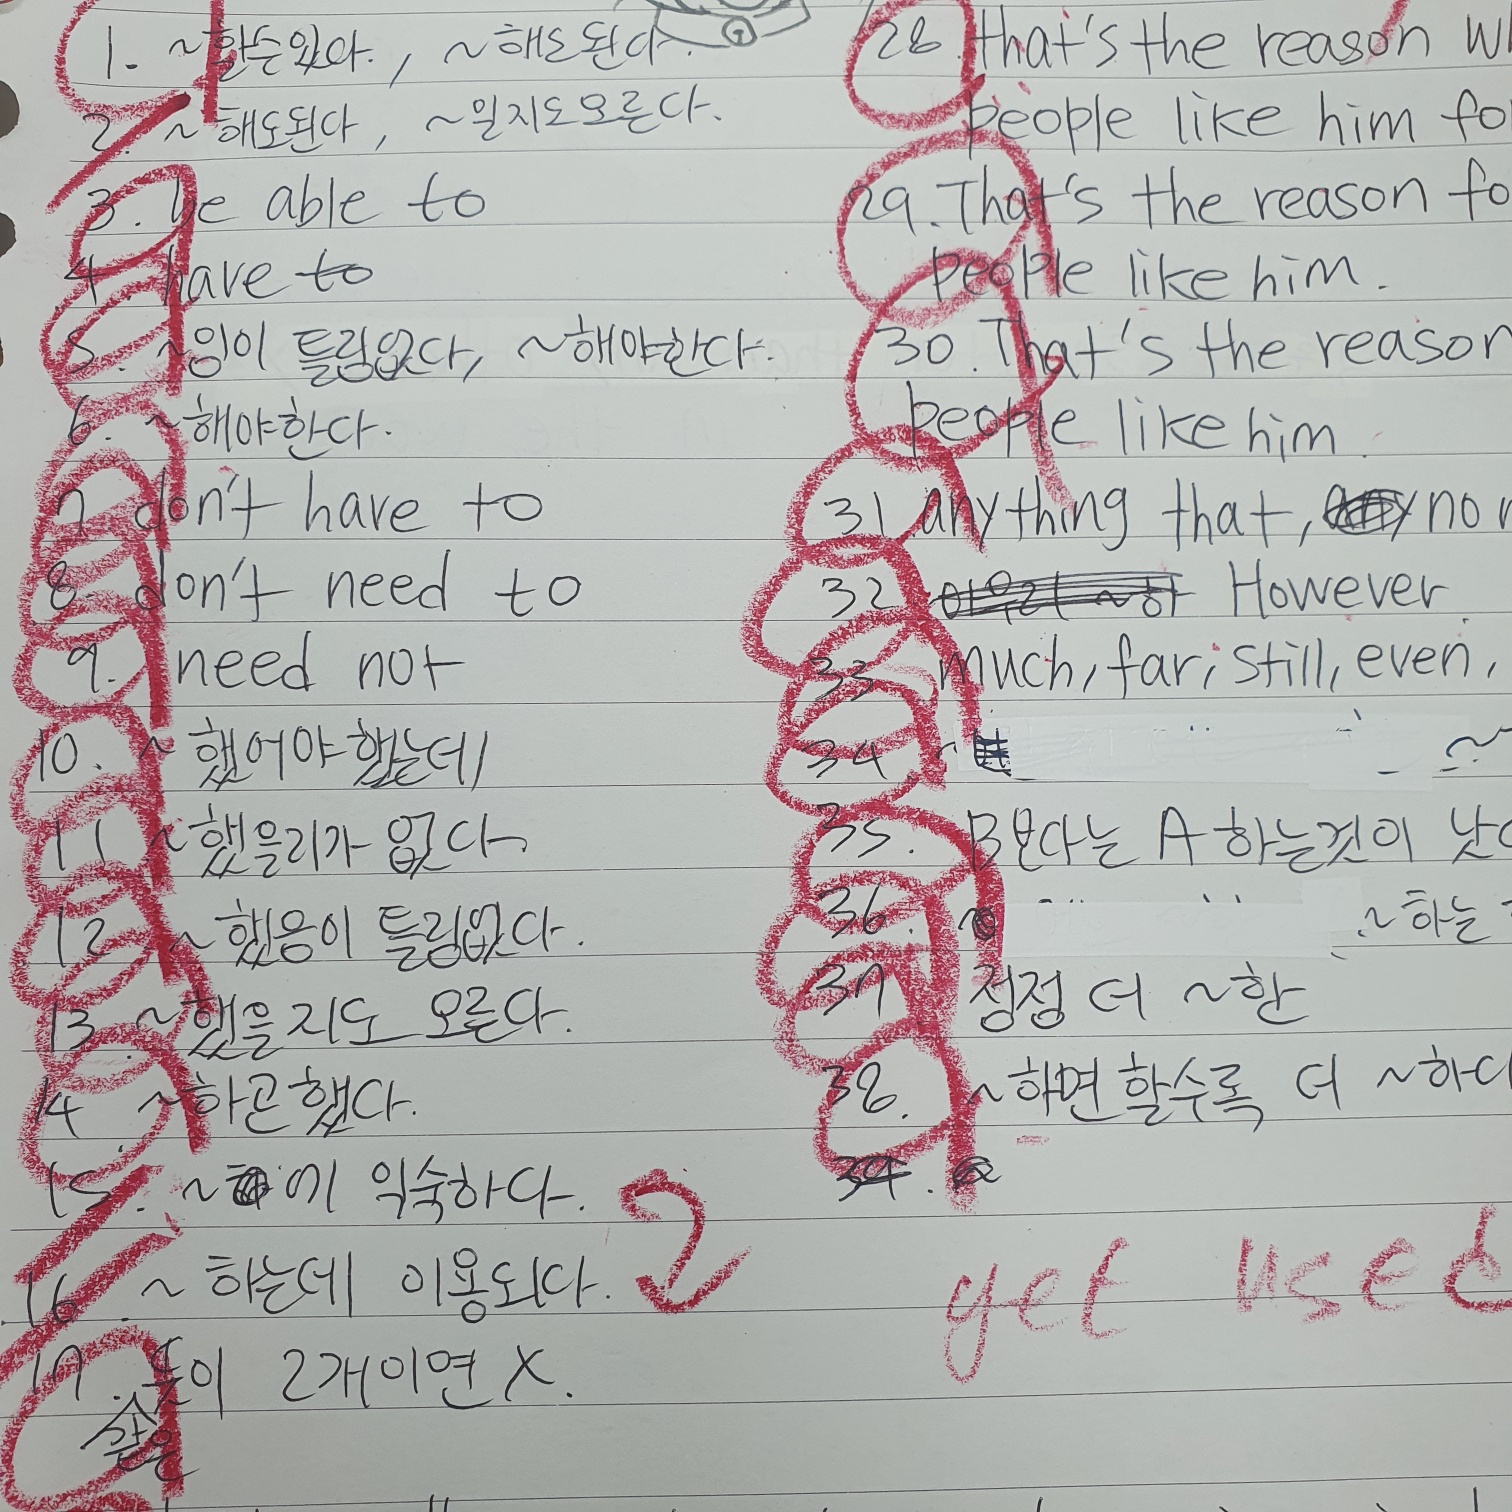 1. ~할수있다., ~해도된다.
2. ~해도된다, ~일지도모른다.
3. be able to
4. have to
5. ~임이 틀림없다, ~해야한다.
6. ~해야한다.
7. don't have to
8. don't need to
9. need not
10. ~했어야했는데
11. ~했을리가 없다.
12. ~했음이 틀림없다.
13. ~했을지도 모른다.
14. ~하곤했다.
15. ~에 익숙하다.
16. ~하는데 이용되다.
2
17. 뜻이 2개이면 X.
28. that's the reason
people like him
29. That's the reason
people like him.
30. That's the reason
people like him.
31. anything that, no
32. However
33. much, far, still, even,
34. ~
35. B보다는 A하는것이
36. ~하는
37. 점점 더 ~한
38. ~하면 할수록 더 ~하다
39.
get used